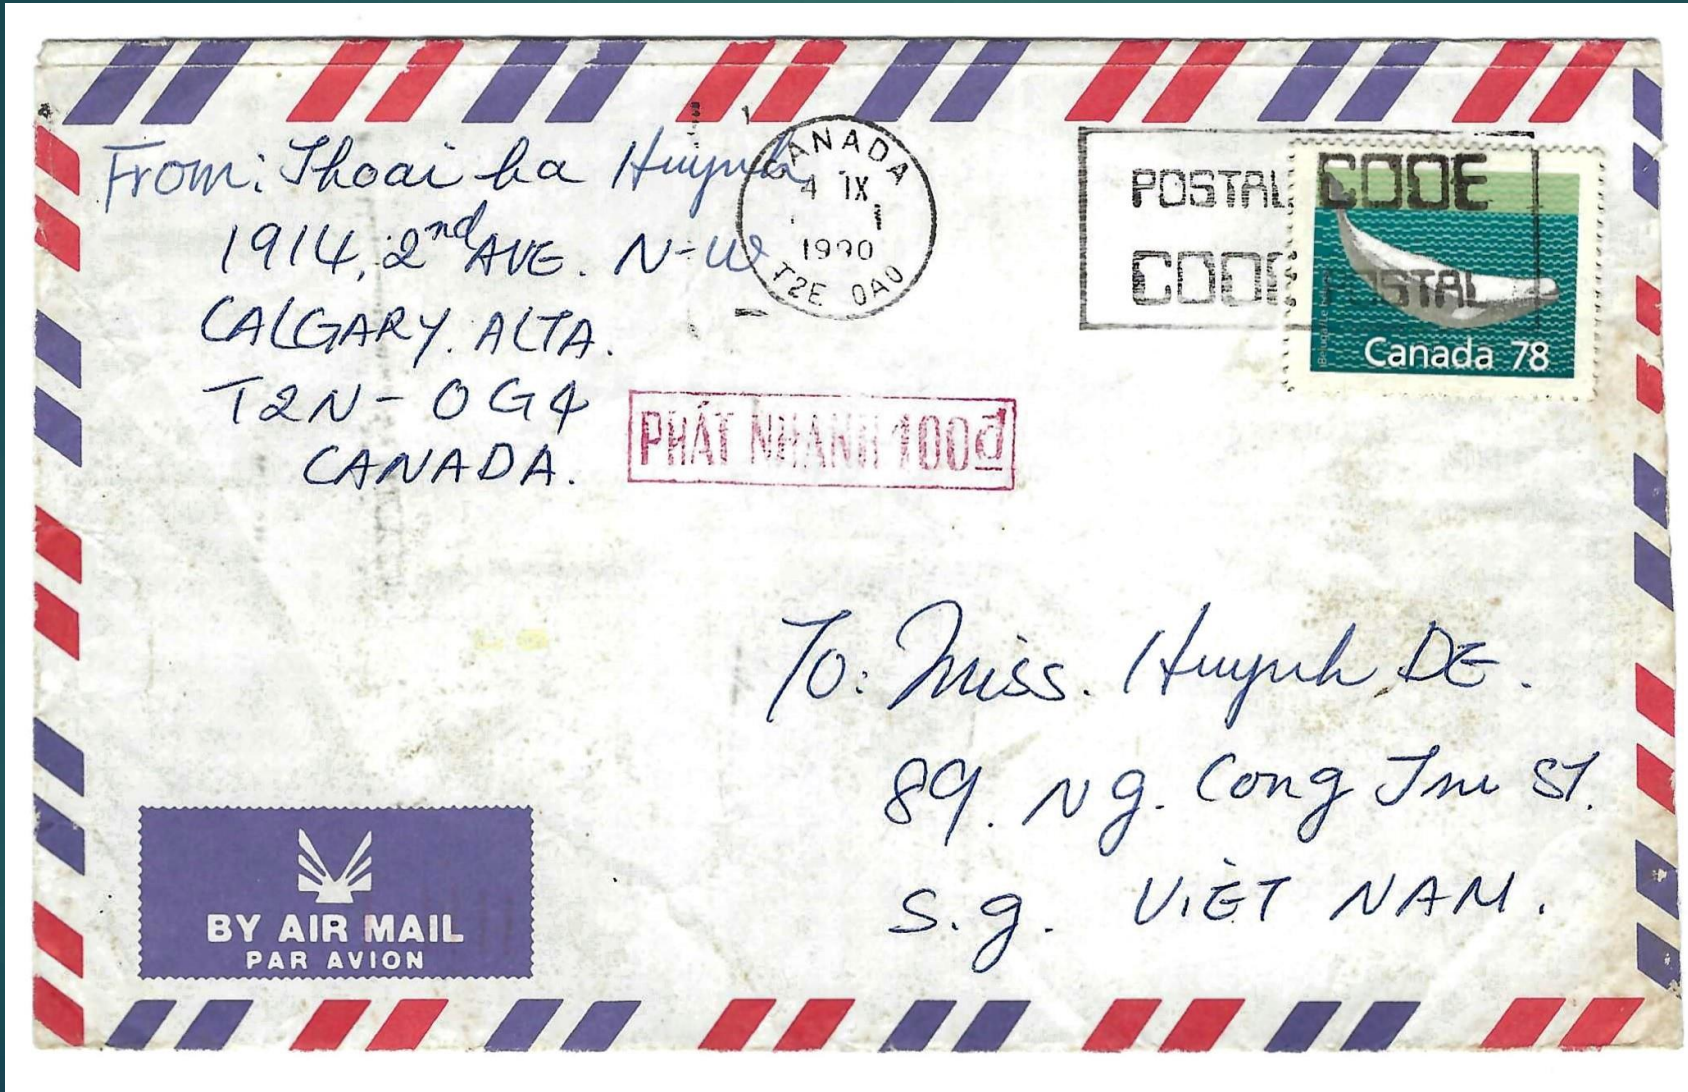 From: Thoai ha Huynh
1914, 2nd AVE. N-W
CALGARY. ALTA.
T2N-0G4
CANADA.
CANADA
4 IX
1990
T2E 0A0
POSTAL CODE
CODE POSTAL
Canada 78
PHÁT NHANH 100đ
To: Miss. Huynh DE.
89. Ng. Cong Tru ST.
S.g. VIÊT NAM.
BY AIR MAIL
PAR AVION